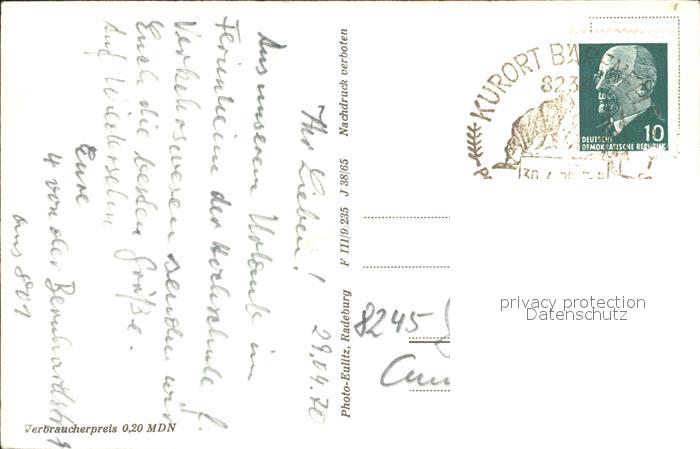 Ihr Lieben! 29.04.70
Aus unserem Urlaub im
Ferienheim der Hochschule f.
Verkehrswesen senden wir
Euch die besten Grüße.
Auf Wiedersehn
Eure
4 von der Bernhardstr.
aus 801
Verbraucherpreis 0,20 MDN
Photo-Eulitz, Radeburg F III/9 235 J 38/65 Nachdruck verboten
KURORT
823
30.4.70
DEUTSCHE
DEMOKRATISCHE REPUBLIK
10
8245
privacy protection
Datenschutz